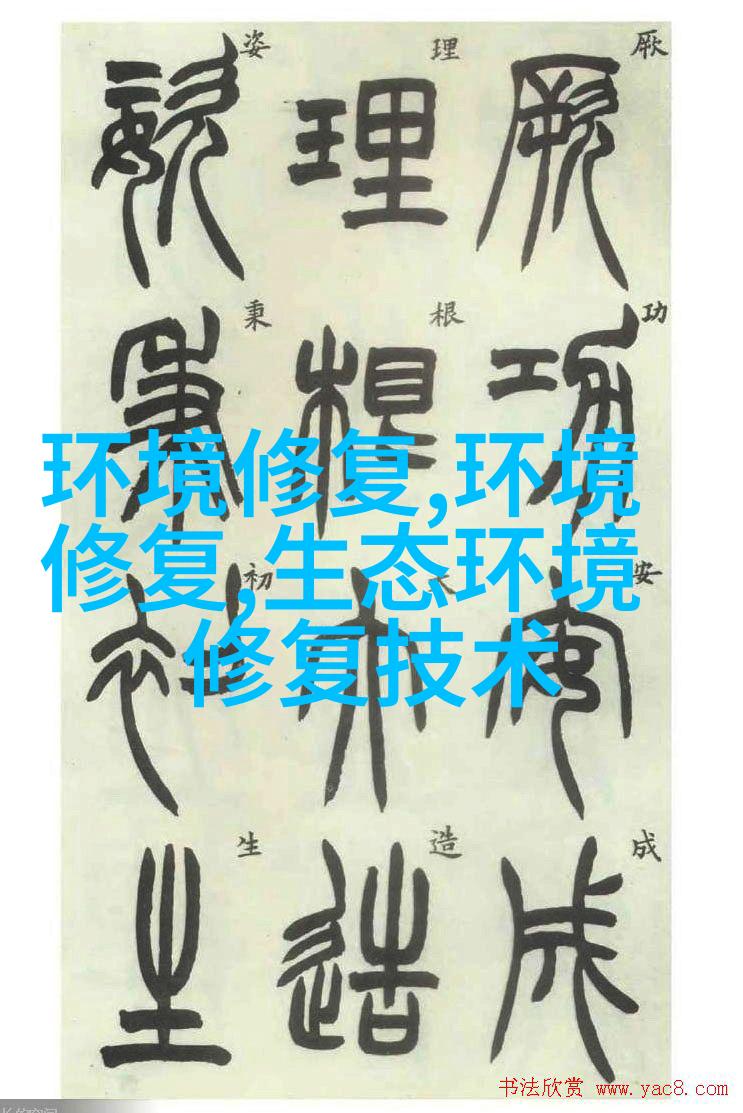 厥功安成
理根大造
姿秉初生
环境修复,环境
修复,生态环境
修复技术
书法欣赏 www.yac8.com